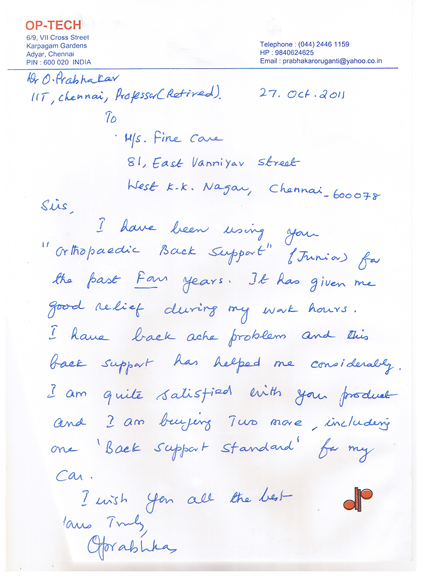 OP-TECH
6/9, VII Cross Street
Karpagam Gardens
Adyar, Chennai
PIN : 600 020 INDIA
Telephone : (044) 2446 1159
HP : 9840624625
Email : prabhakaroruganti@yahoo.co.in
Dr O. Prabhakar
IIT, Chennai, Professor (Retired).
27. Oct. 2011
To
M/S. Fine Care
81, East Vanniyar Street
West K.K. Nagar, Chennai - 600078
Sirs,
I have been using your
"Orthopaedic Back Support" (Junior) for
the past Four years. It has given me
good relief during my work hours.
I have back ache problem and this
back support has helped me considerably.
I am quite satisfied with your product
and I am buying Two more, including
one 'Back Support Standard' for my
Car.
I wish you all the best
Yours Truly,
OPrabhakar